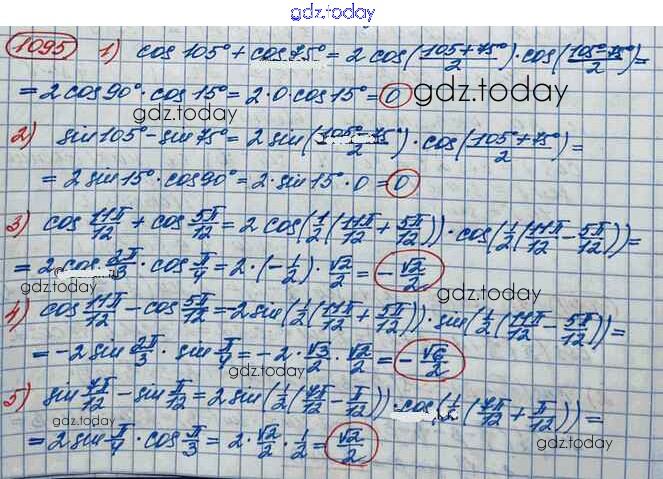 gdz.today
1095 1) cos 105° + cos 75° = 2 cos(105+75°/2) · cos(105°-75°/2) =
= 2 cos 90° · cos 15° = 2 · 0 · cos 15° = 0 gdz.today
2) sin 105° - sin 75° = 2 sin(105°-75°/2) · cos(105°+75°/2) =
= 2 sin 15° · cos 90° = 2 · sin 15° · 0 = 0
3) cos 11π/12 + cos 5π/12 = 2 cos(1/2(11π/12 + 5π/12)) · cos(1/2(11π/12 - 5π/12)) =
= 2 cos 2π/3 · cos π/4 = 2 · (-1/2) · √2/2 = -√2/2
gdz.today
gdz.today
4) cos 11π/12 - cos 5π/12 = -2 sin(1/2(11π/12 + 5π/12)) · sin(1/2(11π/12 - 5π/12)) =
= -2 sin 2π/3 · sin π/4 = -2 · √3/2 · √2/2 = -√6/2
gdz.today
5) sin 7π/12 - sin π/12 = 2 sin(1/2(7π/12 - π/12)) · cos(1/2(7π/12 + π/12)) =
gdz.today
= 2 sin π/4 · cos π/3 = 2 · √2/2 · 1/2 = √2/2
gdz.today